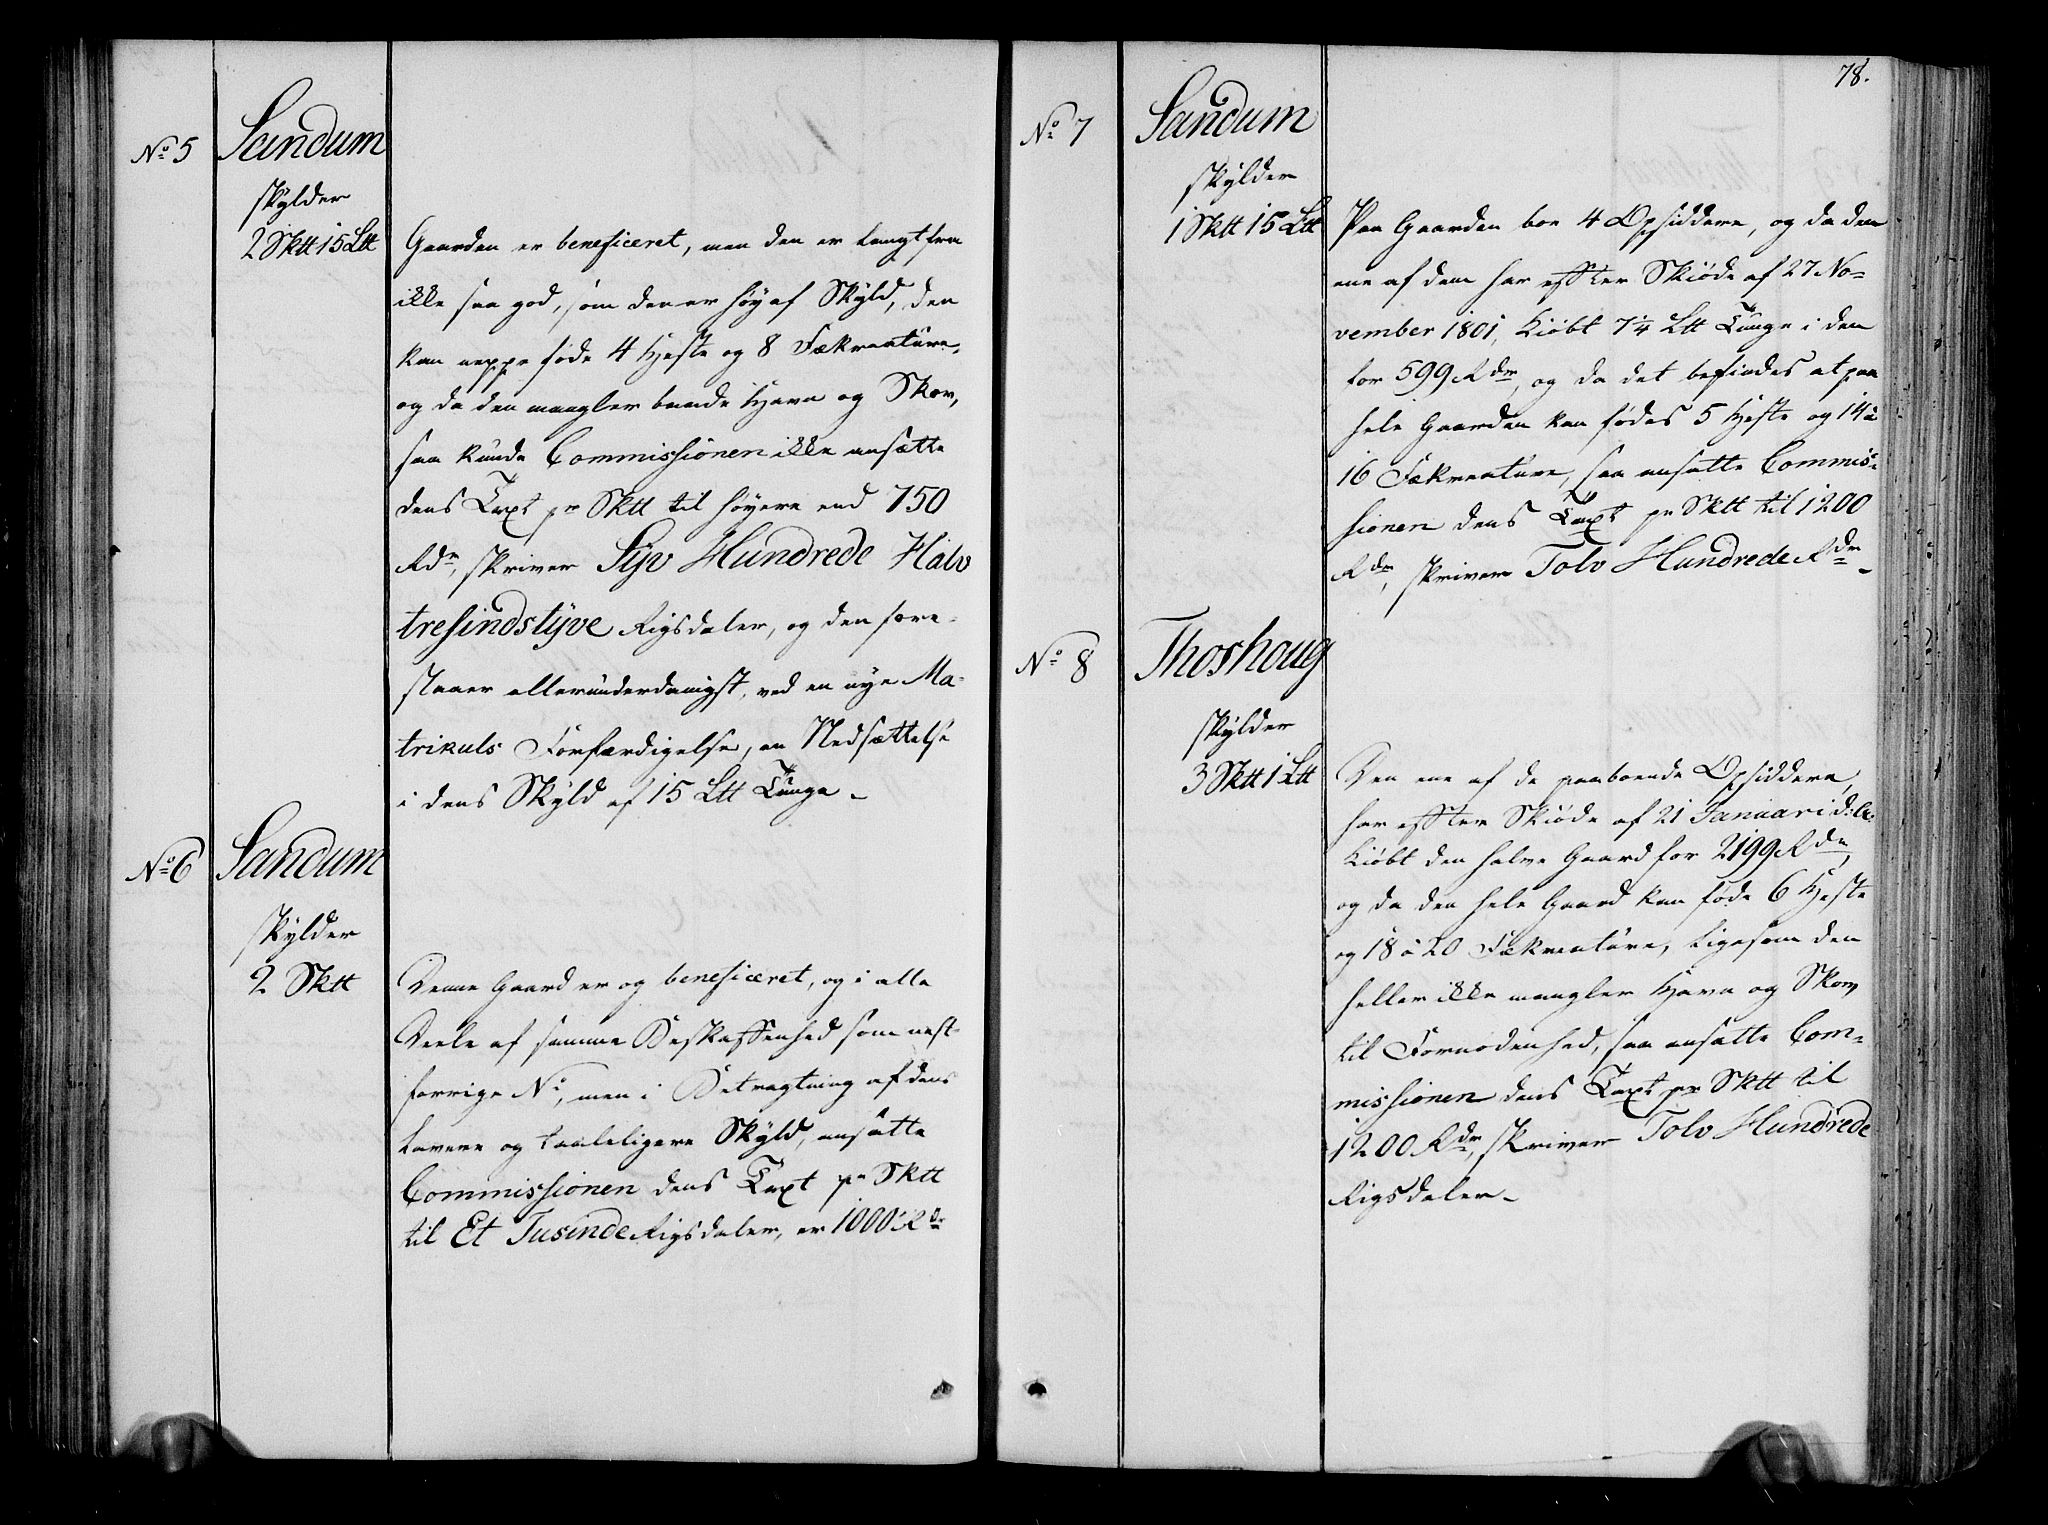 No 5
Sandum
skylder
2 Sktt 15 Ltt
Gaarden er beneficeret, men den er langt fra
ikke saa god, som den er høy af Skyld, den
kan neppe føde 4 Heste og 8 Fækreature,
og da den mangler baade Havn og Skov,
saa kunde Commissionen ikke ansætte
dens Taxt pr Sktt til høyere end 750
Rdr, skriver Syv Hundrede Halv
tresindstyve Rigsdaler, og den fore-
slaaer allerunderdanigst, ved en nye Ma-
trikuls Forfærdigelse, en Nedsættelse
i dens Skyld af 15 Ltt Tunge -
No 6
Sandum
skylder
2 Sktt
Denne Gaard er og beneficeret, og i alle
Deele af samme Beskaffenhed som nest-
forrige No, men i Betragtning af dens
lavere og taaleligere Skyld, ansatte
Commissionen dens Taxt pr Sktt
til Et Tusinde Rigsdaler, er 1000 Rdr
78.
No 7
Sandum
skylder
1 Sktt 15 Ltt
Paa Gaarden boe 4 Opsiddere, og da den
ene af dem har effter Skiøde af 27 No-
vember 1801, kiøbt 7 1/4 Ltt Tunge i den
for 599 Rdr, og da det befindes at paa
hele Gaarden kan fødes 5 Heste og 14 à
16 Fækreature, saa ansatte Commis-
sionen dens Taxt pr Sktt til 1200
Rdr, skriver Tolv Hundrede Rdr -
No 8
Thoshoug
skylder
3 Sktt 1 Ltt
Den ene af de paaboende Opsiddere,
har effter Skiøde af 21 Januari d: A:
kiøbt den halve Gaard for 2199 Rdr,
og da den hele Gaard kan føde 6 Heste
og 18 à 20 Fækreature, ligesom den
heller ikke mangler Havn og Skov
til Fornødenhed, saa ansatte Com-
missionen dens Taxt pr Sktt til
1200 Rdr, skriver Tolv Hundrede
Rigsdaler -